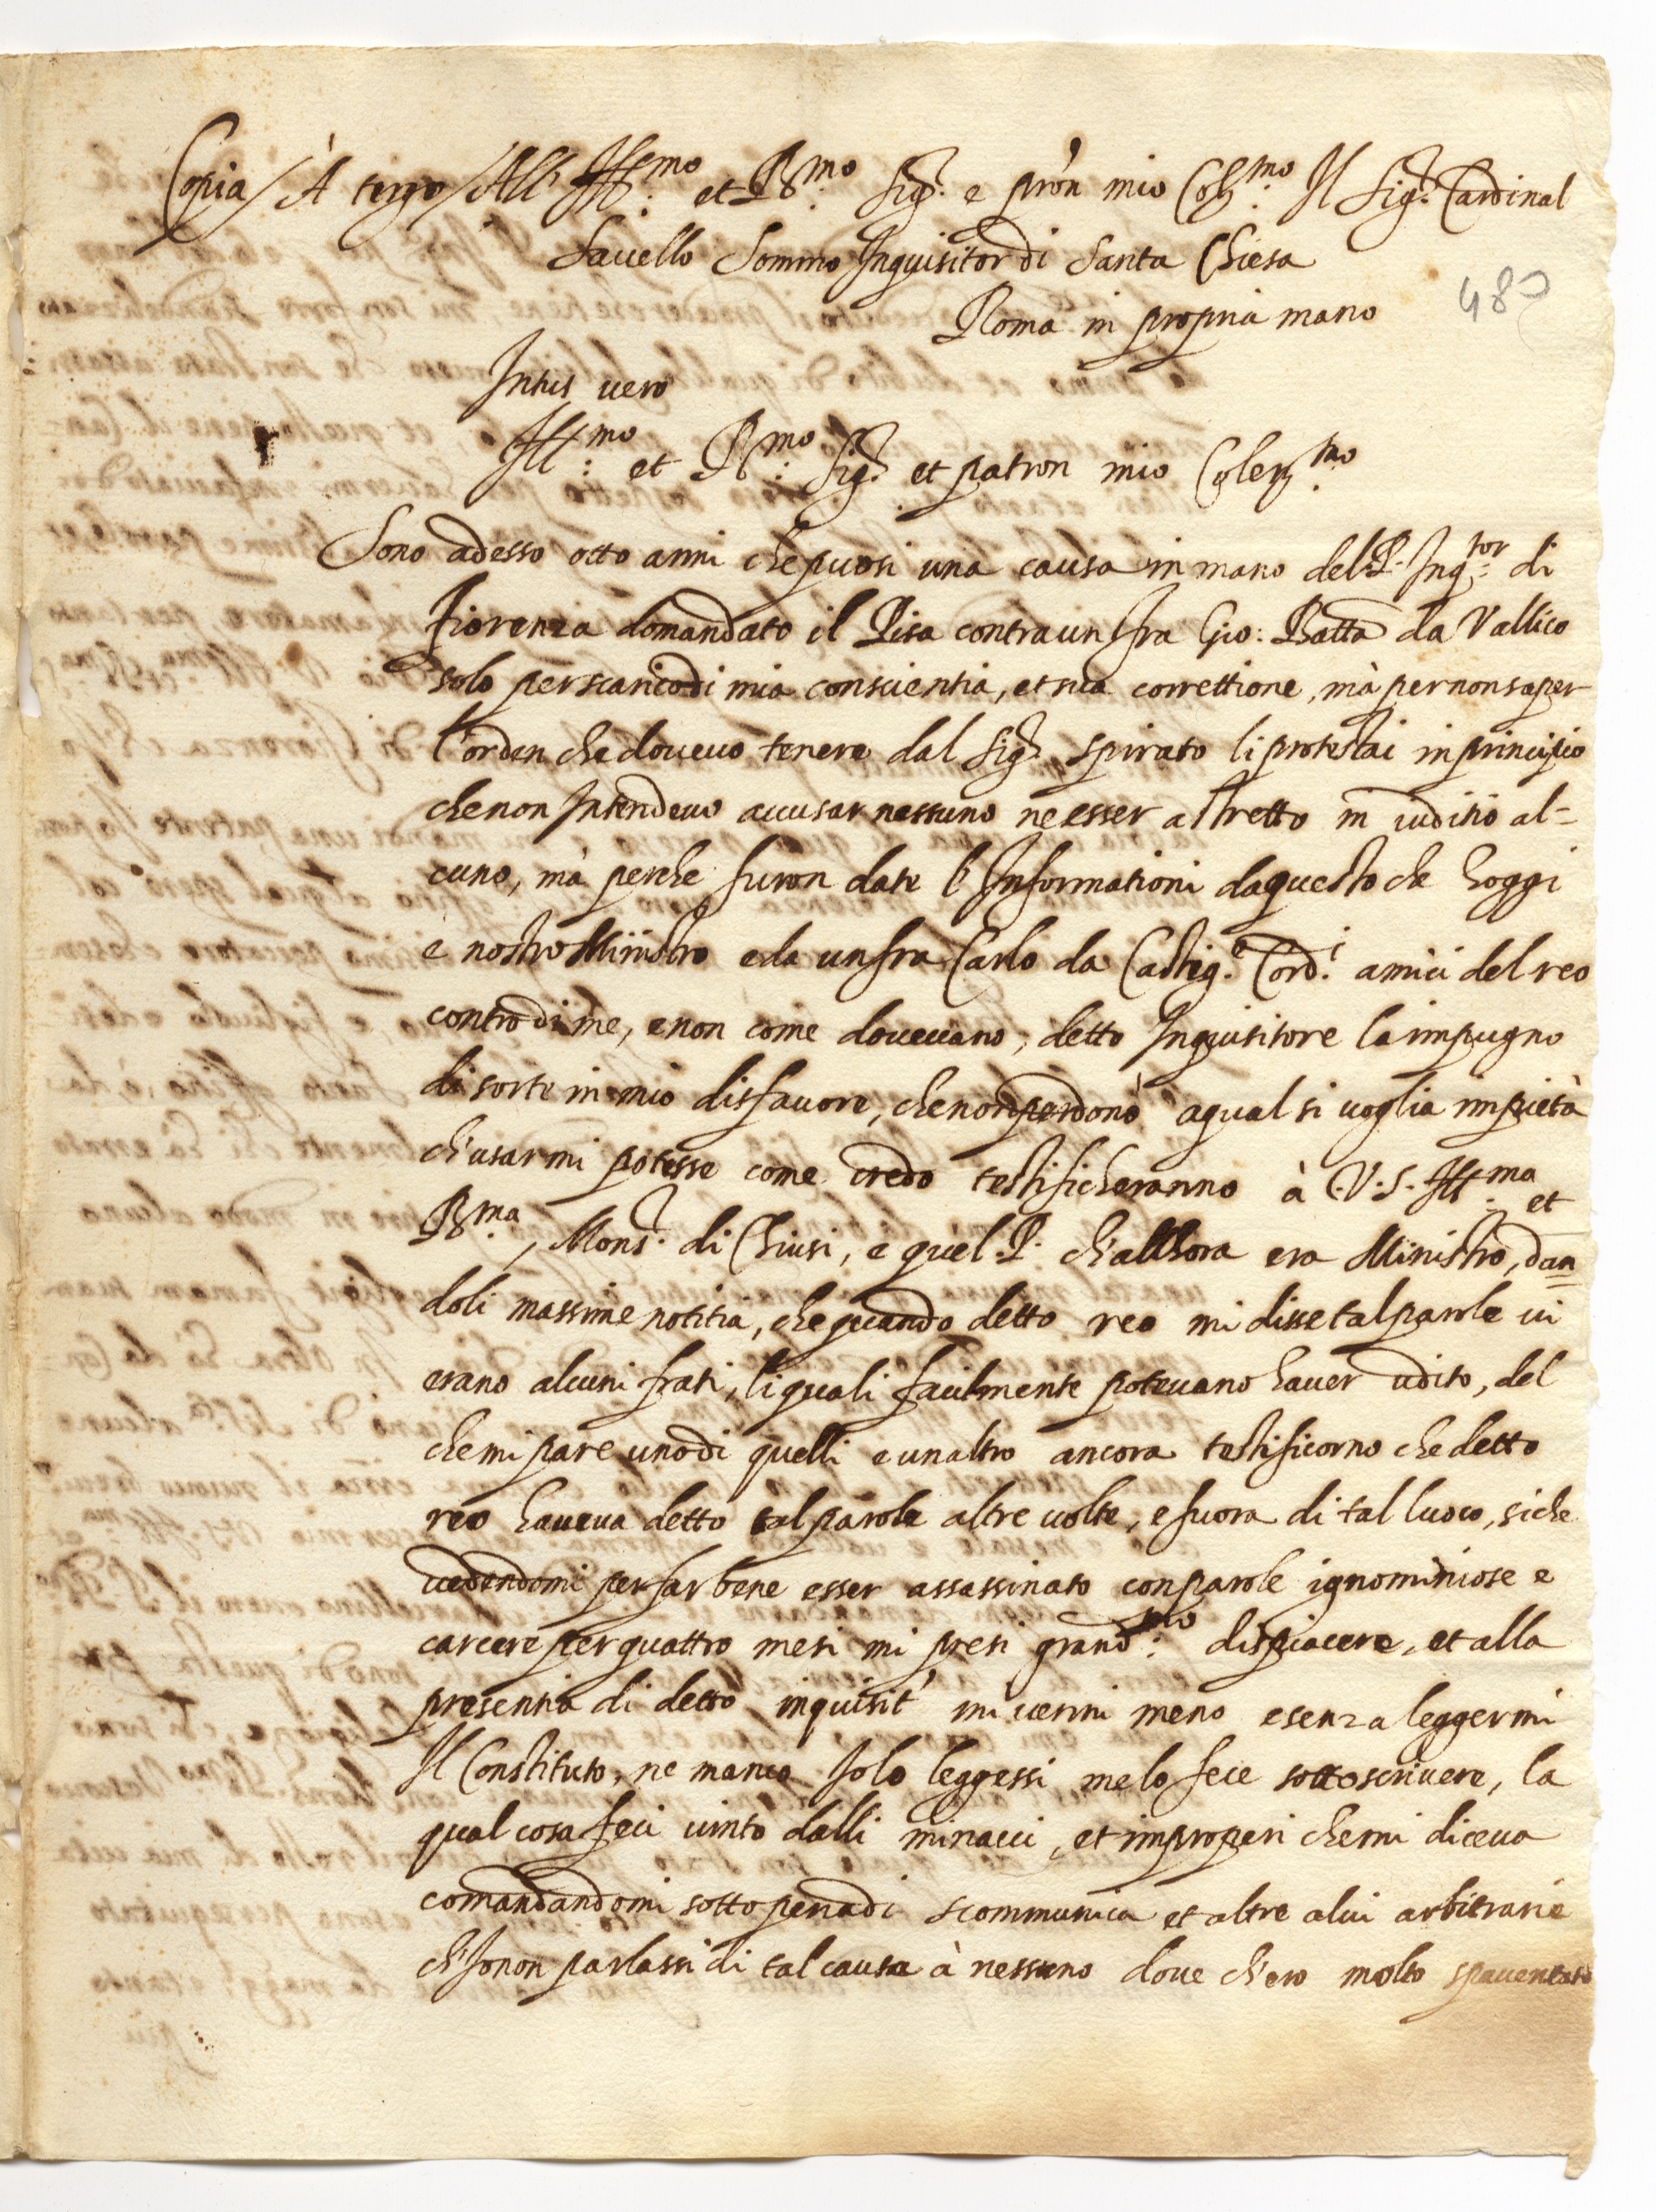 Copia / À tergo / All' Ill.mo et R.mo Sig.r e pròn mio Col.mo Il Sig.r Cardinal
Sauello Sommo Inquisitor di Santa Chiesa
Roma in propria mano
480
Intus uero
Ill.mo et R.mo Sig.r et patron mio Colen.mo
Sono adesso otto anni che puosi una causa in mano del P. Inq.tor di
Fiorenza domandato il Pisa contra un fra Gio: Batta da Vallico
solo per scarico di mia conscientia, et sua correttione, mà per non saper
l'orden che doueuo tenere dal Sig.r spirato li protestai in principio
che non Intendeuo accusar nessuno ne esser astretto in iuditio al=
cuno, mà perche furon date l'Informationi da questo che hoggi
è nostro Ministro e da un fra Carlo da Castig.e Cord.i amici del reo
contro di me, e non come doueuano, detto Inquisitore la impugno
di sorte in mio disfauore, che non perdonò a qual si uoglia impietà
ch'usar mi potesse come credo testificheranno à V.S. Ill.ma et
R.ma, Mons.r di Chiusi, e quel P. ch'allhora era Ministro, dan=
doli massime notitia, che quando detto reo mi disse tal parole ui
erano alcuni frati, li quali facilmente poteuano hauer udito, del
che mi pare uno di quelli e un altro ancora testificorno che detto
reo haueua detto tal parole altre uolte, e fuora di tal luoco, siche
uedendomi per far bene esser assassinato con parole ignominiose e
carcere per quattro mesi mi presi grand.mo dispiacere, et alla
presentia di detto inquisit' mi uenni meno e senza leggermi
Il Constituto, ne manco Io lo leggessi me lo fece sottoscriuere, la
qual cosa feci uinto dalli minacci, et improperi che mi diceua
comandandomi sotto pena di scommunica et altre a lui arbitrarie
ch'Io non parlassi di tal causa à nessuno doue ch'ero molto spauentato